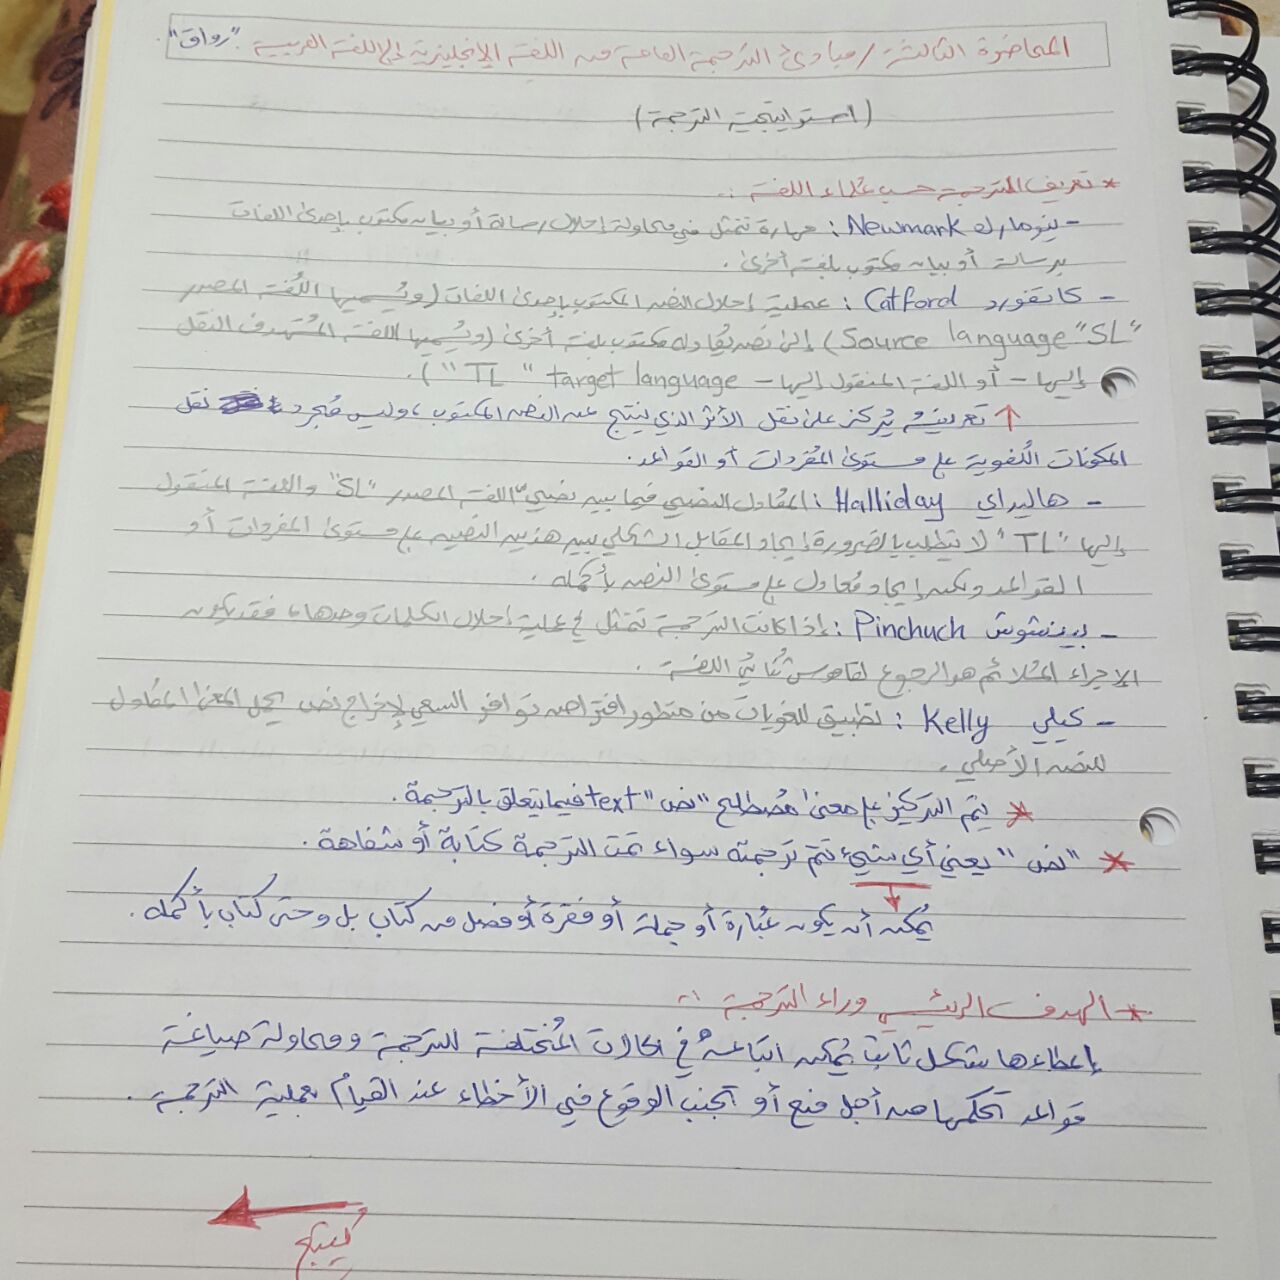 المحاضرة الثالثة / مبادئ الترجمة العامة من اللغة الإنجليزية إلى اللغة العربية "رواق".
(استراتيجية الترجمة)
* تعريف الترجمة حسب علماء اللغة :.
- نيومارك Newmark : مهارة تتمثل في محاولة إحلال رسالة أو بيان مكتوب بإحدى اللغات
برسالة أو بيان مكتوب بلغة أخرى .
- كاتفورد Catford : عملية إحلال النص المكتوب بإحدى اللغات (ويُسميها اللُغة المصدر
Source language "SL") إلى نص يُعادله مكتوب بلغة أخرى (ويُسميها اللغة المُستهدف النقل
إليها - أو اللغة المنقول إليها - target language "TL").
↑ تعريفه يُركز على نقل الأثر الذي ينتج عن النص المكتوب ، وليس مُجرد نقل
المكونات اللُغوية على مستوى المُفردات أو القواعد.
- هاليداي Halliday : المُعادل النصي فيما بين نصي اللغة المصدر "SL" واللغة المنقول
إليها "TL" لا يتطلب بالضرورة إيجاد المقابل الشكلي بين هذين النصين على مستوى المفردات أو
القواعد ولكن إيجاد مُعادل على مستوى النص بأكمله .
- بينشوش Pinchuch : إذا كانت الترجمة تتمثل في عملية إحلال الكلمات وحدها ، فقد يكون
الإجراء المُلائم هو الرجوع لقاموس ثُنائي اللغة .
- كيلي Kelly : تطبيق للغويات من منظور افتراض توافر السعي لإخراج نص يحمل المعنى المطلوب
للنص الأصلي .
* يتم التركيز على معنى مُصطلح "نص" text فيما يتعلق بالترجمة .
* "نص" يعني أي شيء تتم ترجمته سواء تمت الترجمة كتابة أو شفاهة .
يُمكن أن يكون عبارة أو جملة أو فقرة أو فصل من كتاب بل وحتى كتاب بأكمله .
* الهدف الرئيسي وراء الترجمة :-
إعطاءها شكل ثابت يُمكن اتباعهُ في الحالات المُختلفة للترجمة ومحاولة صياغة
قواعد تحكمها من أجل منع أو تجنب الوقوع في الأخطاء عند القيام بعملية الترجمة .
يُتبع